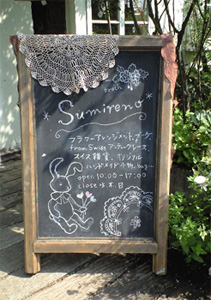 Sumireno
フラワーアレンジメント、ブーケ
from Swiss アンティークレース、
スイス雑貨、オリジナル
ハンドメイド小物、
open 10:00-17:00
close 水、木、日